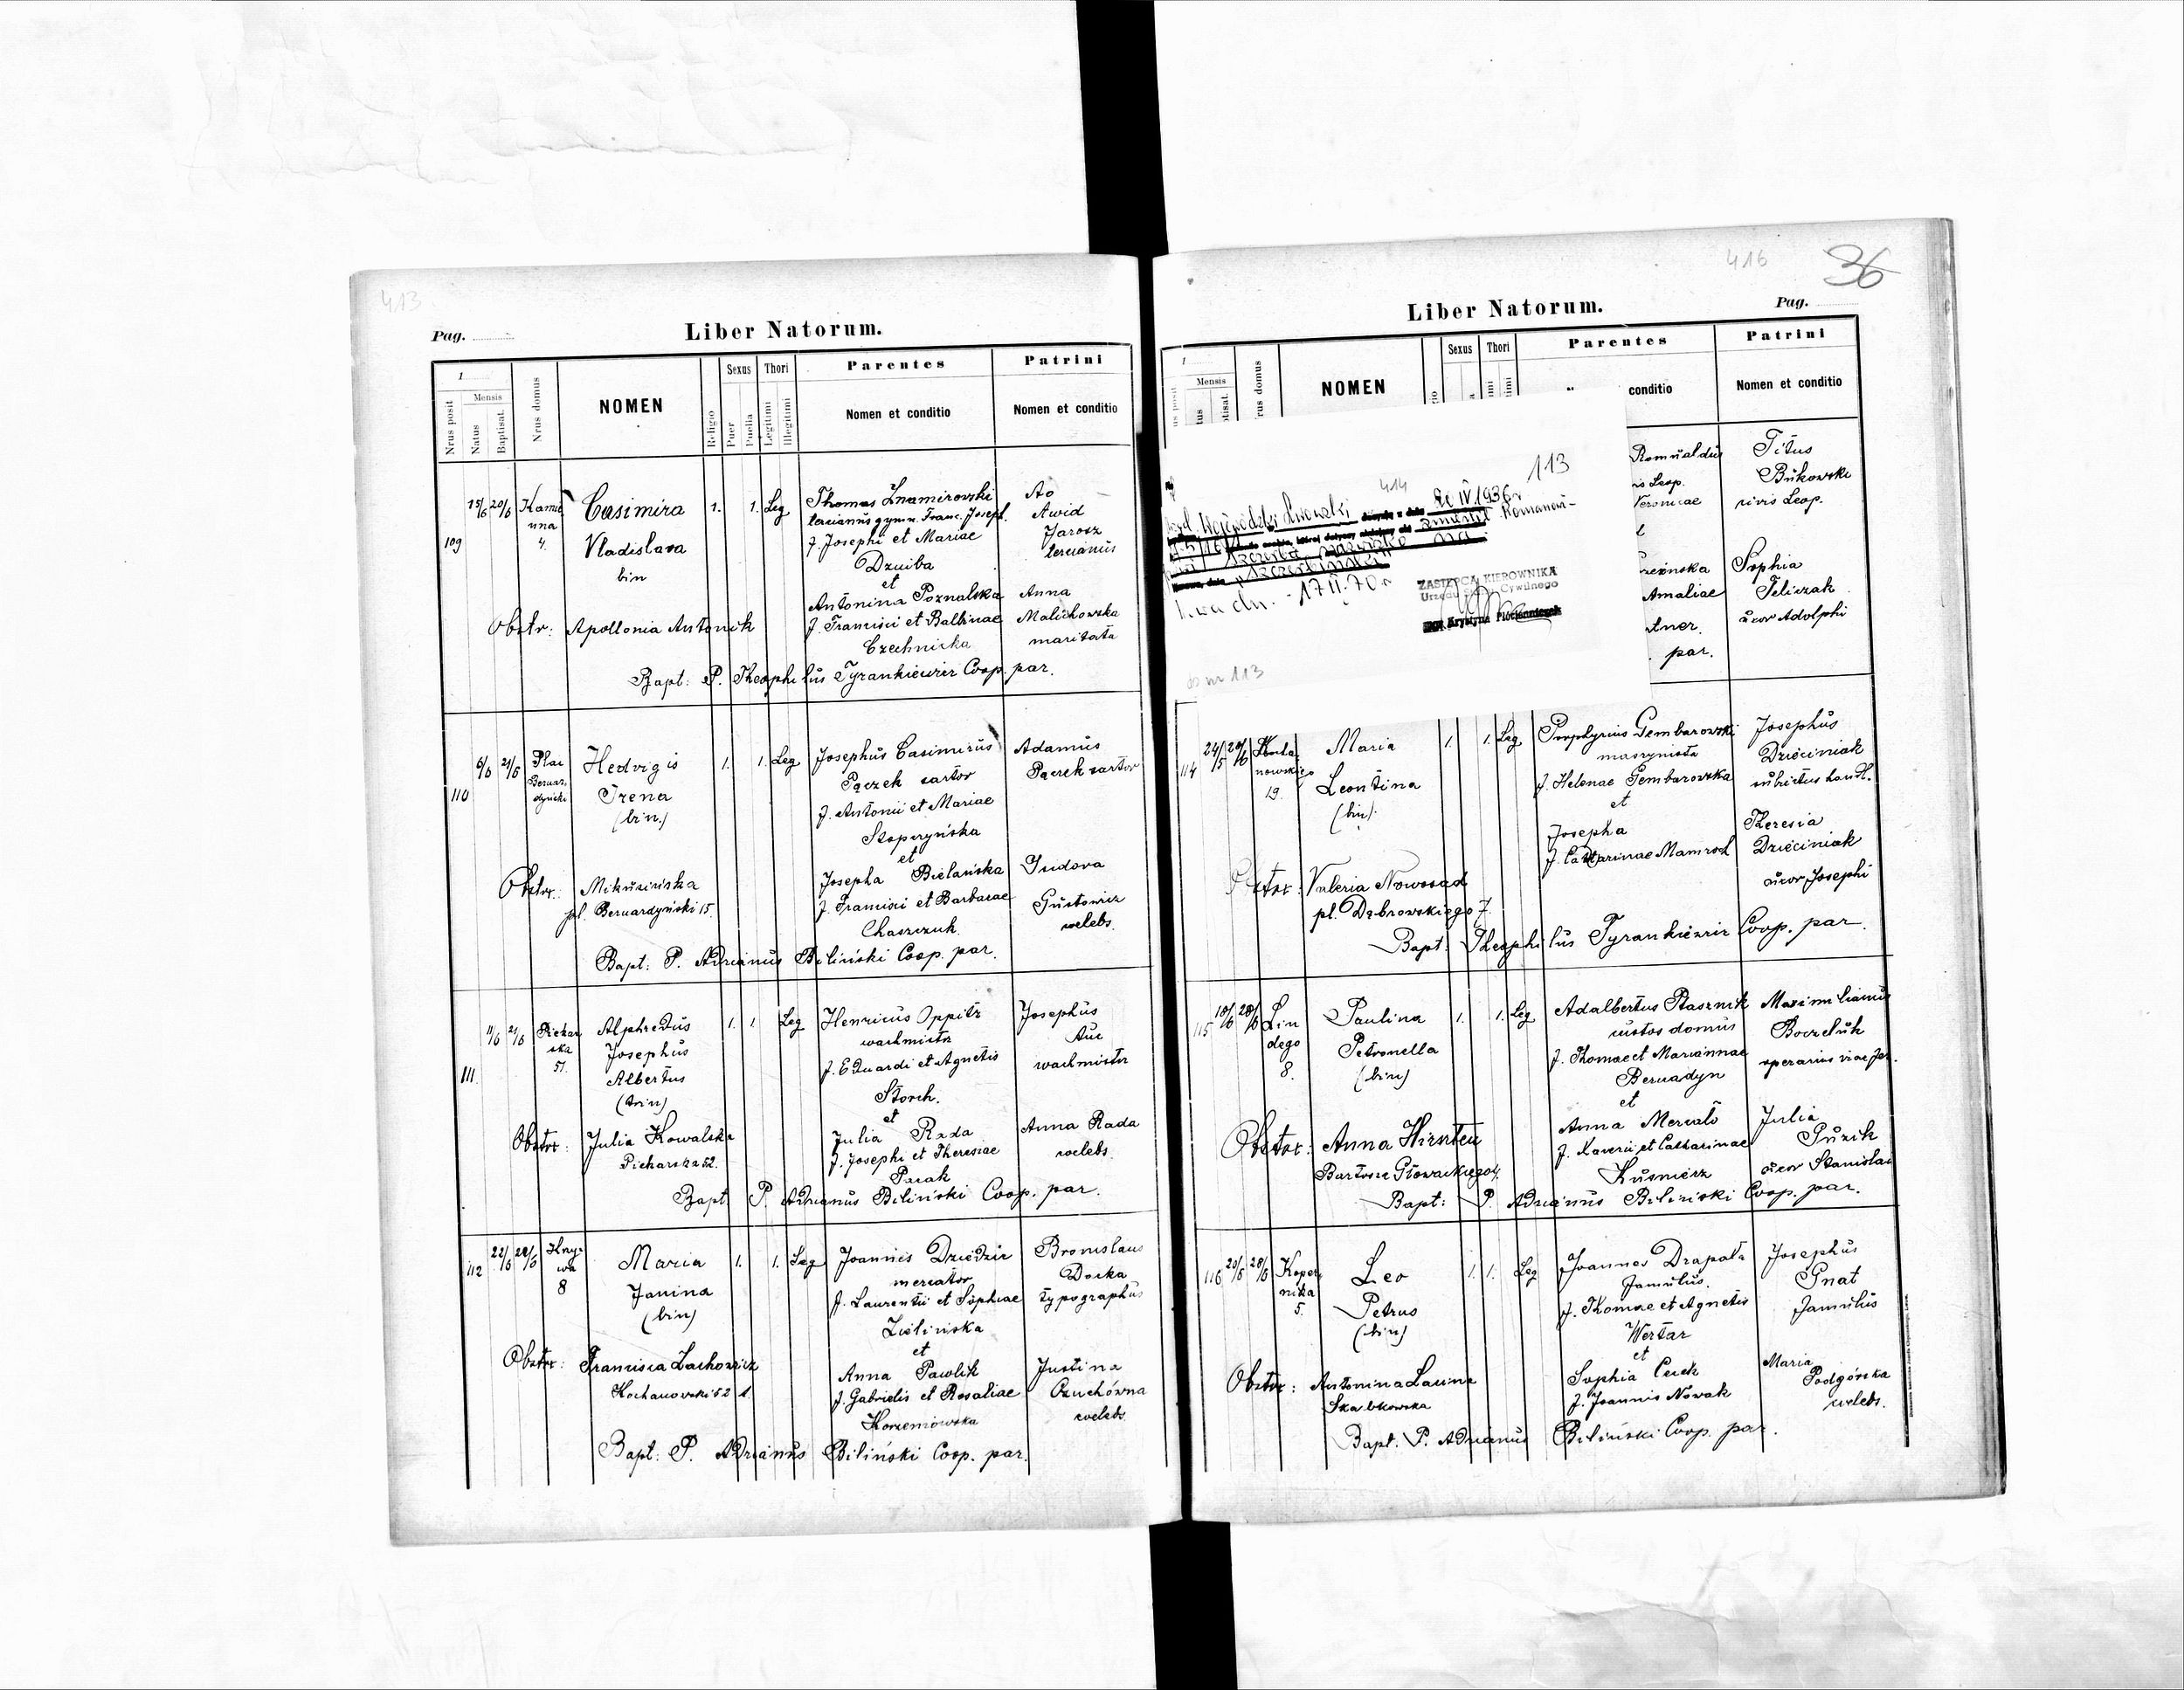 413
Pag.
Liber Natorum.
1
Nrus posit
Mensis
Natus
Baptisat.
Nrus domus
NOMEN
Religio
Sexus
Puer
Puella
Thori
Legitimi
Illegitimi
Parentes
Nomen et conditio
Patrini
Nomen et conditio
109
15/6 20/6
4.
Casimira
Vladislava
bin
1. 1. Leg
Thomas Znamirowski
tercianus gymn. Franc. Joseph.
f. Josephi et Mariae
Dzuiba
et
Antonina Poznalska
f. Francisci et Balbinae
Czechnicka
Awid
Jarosz
tercianus
Anna
Malichowska
maritata
Obstr: Apollonia Antonik
Bapt: P. Theophilus Tyrankiewicz Coop. par.
110
6/6 21/6
Plac
Bernar-
dyński
Hedvigis
Irena
(bin.)
1. 1. Leg
Josephus Casimirus
Pączek sartor
f. Antonii et Mariae
Stopczyńska
et
Josepha Bielańska
f. Francisci et Barbarae
Chaszczuk
Adamus
Pączek sartor
Gustowicz
coelebs.
Obstr: Mikusińska
pl. Bernardyński 15.
Bapt: P. Adrianus Biliński Coop. par.
111.
11/6 21/6
Piekar
ska
51.
Alphredus
Josephus
Albertus
(trin)
1. 1. Leg
Henricus Oppitz
wachmistr
f. Eduardi et Agnetis
Storch.
et
Julia Rada
f. Josephi et Theresiae
Josephus
Auc
wachmistr
Anna Rada
coelebs.
Obstr: Julia Kowalska
Piekarska 52.
Bapt P. Adrianus Biliński Coop. par.
112
8
Maria
Janina
(bin)
1. 1. Leg
Joannes Dziedzic
mercator
f. Laurentii et Sophiae
Zielińska
et
Anna Pawlik
f. Gabrielis et Rosaliae
Korzeniowska
Bronislaus
Dacka
typographus
Justina
Czuchówna
coelebs.
Obstr: Francisca Lachowicz
Kochanowski 52
Bapt: P. Adrianus Biliński Coop. par.
416
36
Liber Natorum.
Pag.
1
Mensis
rus domus
NOMEN
Sexus
Thori
Parentes
conditio
Patrini
Nomen et conditio
113
414
20 IV 1936 r
17 II.70 r
ZASTĘPCA KIEROWNIKA
Urzędu Stanu Cywilnego
do nr 113
Romualdus
is Leop.
Veronicae
Amaliae
par.
Titus
Bukowski
civis Leop.
Sophia
Feliczak
uxor Adolphi
114
24/5 20/6
19.
Maria
Leontina
(bin).
1. 1. Leg
Porphyrius Gembarowski
maszynista
f. Helenae Gembarowska
et
Josepha
f. Catharinae Mamroch
Josephus
Dzieciniak
Theresia
Dzieciniak
uxor Josephi
Obstr: Valeria Nowosad
pl. Dąbrowskiego 7.
Bapt: Theophilus Tyrankiewicz Coop. par.
115
Lin
dego
8.
Paulina
Petronella
(bin)
1. 1. Leg
Adalbertus Ptasznik
custos domus
f. Thomae et Mariannae
Bernadyn
et
Anna Mercało
f. Xaverii et Catharinae
Kuśnierz
Maximilianus
Boczeluk
operarius viae fer.
Julia
Puzik
uxor Stanislai
Obstr: Anna Hirnten
Bartosza Głowackiego
Bapt: P. Adrianus Biliński Coop. par.
116
Koper
nika
5.
Leo
Petrus
(bin)
1. 1. Leg
Joannes Drapała
famulus.
f. Thomae et Agnetis
Wertar
et
Sophia Cecek
f. Joannis Nowak
Josephus
Gnat
famulus
Maria
Podgórska
coelebs.
Obstr: Antonina Laurina
Skałkowska
Bapt: P. Adrianus Biliński Coop. par.